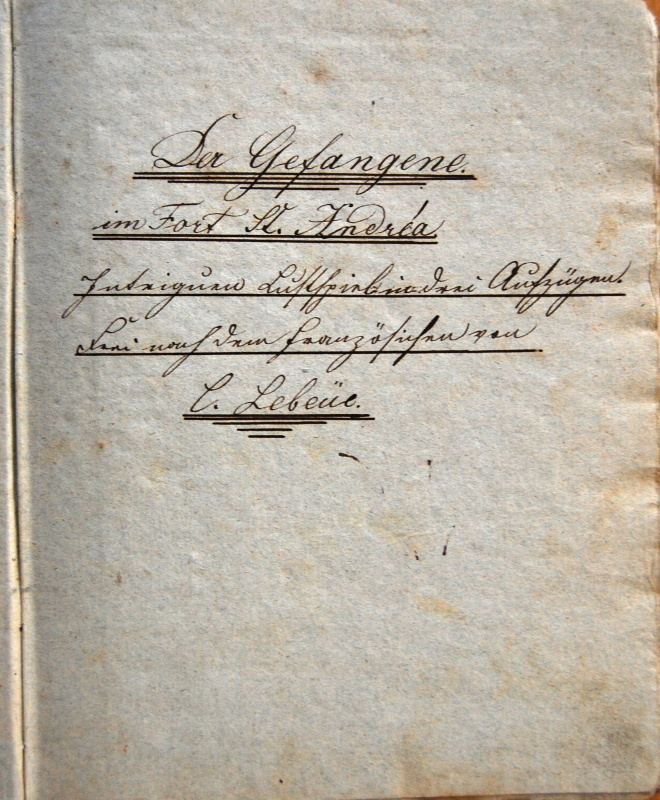 Der Gefangene.
im Fort St. Andréa
Intriguen Lustspiel in drei Aufzügen.
Frei nach dem französischen von
C. Lebeüe.